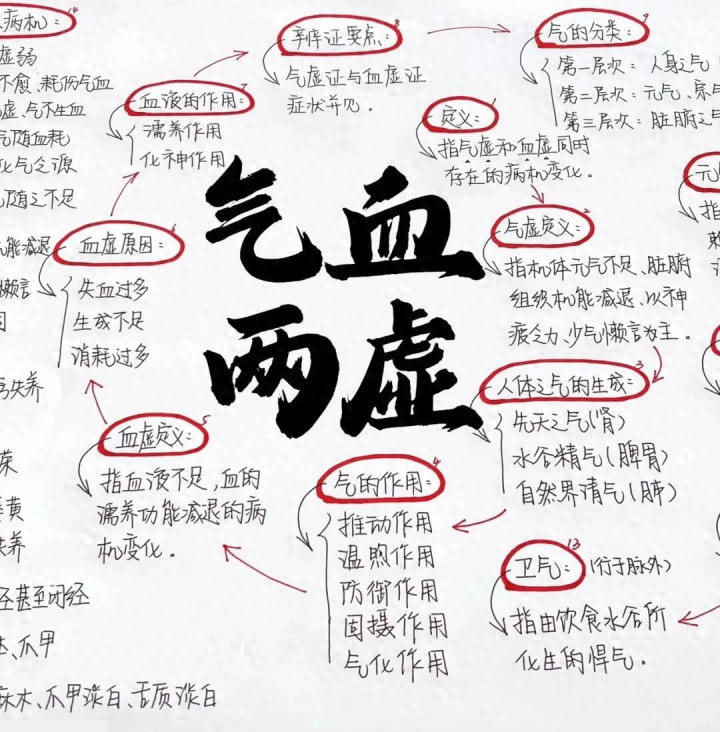 气血
两虚
定义:
指气虚和血虚同时
存在的病机变化。
气虚定义:
指机体元气不足、脏腑
组织机能减退、以神
疲乏力、少气懒言为主.
人体之气的生成:
先天之气(肾)
水谷精气(脾胃)
自然界清气(肺)
气的作用:
推动作用
温煦作用
防御作用
固摄作用
气化作用
血虚定义:
指血液不足,血的
濡养功能减退的病
机变化.
血虚原因:
失血过多
生成不足
消耗过多
血液的作用:
濡养作用
化神作用
辨证要点:
气虚证与血虚证
症状并见.
气的分类:
第一层次:人身之气
第二层次:元气、宗气
第三层次:脏腑之气
卫气:(行于脉外)
指由饮食水谷所
化生的悍气.
病机:
虚弱
不愈、耗伤气血
虚、气不生血
气随血耗
化气之源
随之不足
能减退
懒言
失养
荣
萎黄
失养
经甚至闭经
爪甲
麻木、爪甲淡白、舌质淡白
元
指